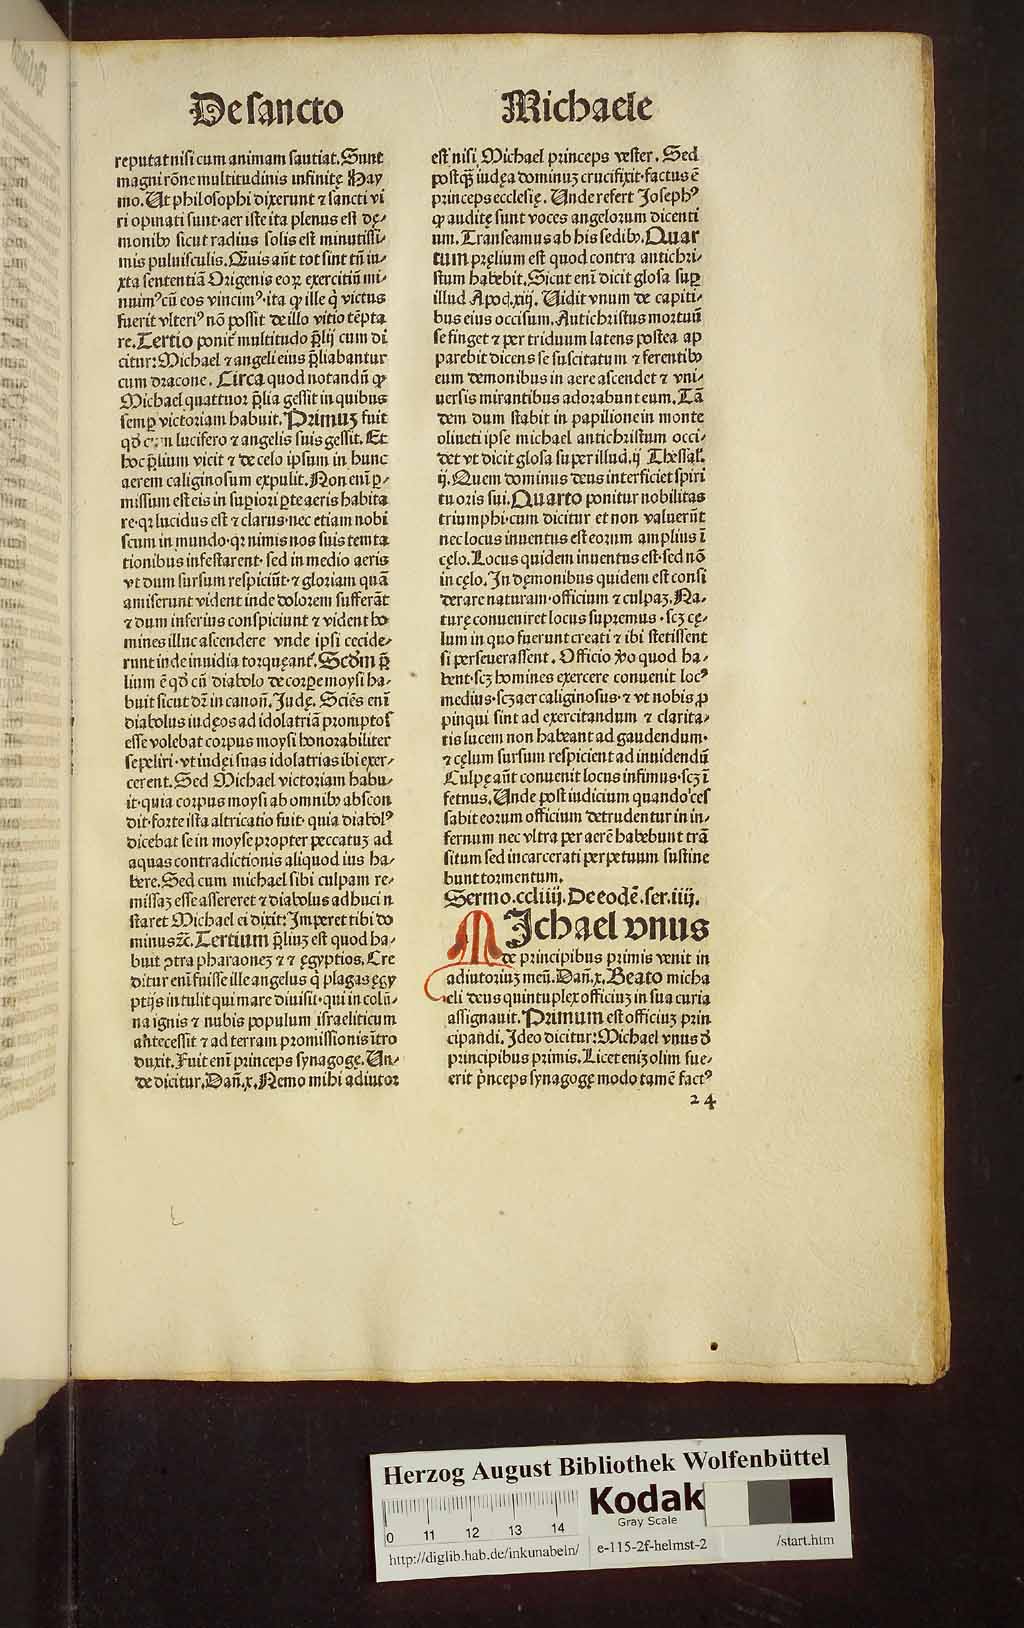 De sancto
Michaele
reputat nisi cum animam sautiat. Sunt
magni rōne multitudinis infinitę Hay
mo. Ut philosophi dixerunt ⁊ sancti vi
ri opinati sunt·aer iste ita plenus est dę⸗
monibꝰ sicut radius solis est minutissi⸗
mis puluisculis. Quis aūt tot sint tn̄ iu⸗
xta sententiā Origenis eoꝝ exercitiū mi⸗
nuimꝰ cū eos vincimꝰ·ita ꝙ ille q̇ victus
fuerit vlteriꝰ nō possit de illo vitio tēpta
re. Tertio ponit᷑ multitudo p̄lij cum di
citur: Michael ⁊ angeli eius p̄liabantur
cum dracone. Circa quod notandū ꝙ
Michael quattuor p̄lia gessit in quibus
semꝑ victoriam habuit. Primuꝫ fuit
qd̓ cum lucifero ⁊ angelis suis gessit. Et
hoc p̄lium vicit ⁊ de celo ipsum in hunc
aerem caliginosum expulit. Non em̄ ꝑ⸗
missum est eis in suꝑiori ꝑte aeris habita
re·qꝛ lucidus est ⁊ clarus·nec etiam nobi
scum in mundo·qꝛ nimis nos suis tenta
tionibus infestarent·sed in medio aeris
vt dum sursum respiciūt·⁊ gloriam quā
amiserunt vident inde dolorem sufferāt
⁊ dum inferius conspiciunt ⁊ vident ho
mines illuc ascendere vnde ipsi cecide⸗
runt inde inuidia torquęant᷑. Scd̓m p̄
lium ē qd̓ cū diabolo de corꝑe moysi ha⸗
buit sicut dr̄ in canon̄. Judę. Sciēs em̄
diabolus iudęos ad idolatriā promptos
esse volebat corpus moysi honorabiliter
sepeliri·vt iudęi suas idolatrias ibi exer⸗
cerent. Sed Michael victoriam habu⸗
it·quia corpus moysi ab omnibꝰ abscon
dit·forte ista altricatio fuit·quia diabolꝰ
dicebat se in moyse propter peccatuꝫ ad
aquas contradictionis aliquod ius ha⸗
bere. Sed cum michael sibi culpam re⸗
missaꝫ esse assereret ⁊ diabolus adhuc in
staret Michael ei dixit: Imperet tibi do
minus ⁊c̄. Tertium p̄liuꝫ est quod ha⸗
buit ↄtra pharaoneꝫ ⁊ ⁊ ęgyptios. Cre
ditur em̄ fuisse ille angelus q̇ plagas ęgy
ptijs intulit qui mare diuisit·qui in colū⸗
na ignis ⁊ nubis populum israeliticum
antecessit ⁊ ad terram promissionis ītro
duxit. Fuit em̄ princeps synagogę. Un⸗
de dicitur. Dan̄. x. Nemo mihi adiutor
est nisi Michael princeps vester. Sed
postqꝫ̄ iudęa dominuꝫ crucifixit·factus ē
princeps ecclesię. Unde refert Josephꝰ
ꝙ auditę sunt voces angelorum dicenti
um. Transeamus ab his sedibꝰ. Quar
tum pręlium est quod contra antichri⸗
stum habebit. Sicut em̄ dicit glosa suꝑ
illud Apoc̄. xiij. Uidit vnum de capiti⸗
bus eius occisum. Antichristus mortuū
se finget ⁊ per triduum latens postea ap
parebit dicens se suscitatum ⁊ ferentibꝰ
eum demonibus in aere ascendet ⁊ vni⸗
uersis mirantibus adorabunt eum. Tā
dem dum stabit in papilione in monte
oliueti ipse michael antichristum occi⸗
det vt dicit glosa super illud. ij Thessal̓.
ij. Quem dominus deus interficiet spiri
tu oris sui. Quarto ponitur nobilitas
triumphi·cum dicitur et non valuerūt
nec locus inuentus est eorum amplius ī
cęlo. Locus quidem inuentus est·sed nō
in cęlo. In dęmonibus quidem est consi
derare naturam·officium ⁊ culpaꝫ. Na⸗
turę conueniret locus supremus·scꝫ cę⸗
lum in quo fuerunt creati ⁊ ibi stetissent
si perseuerassent. Officio v̓o quod ha⸗
bent·scꝫ homines exercere conuenit locꝰ
medius·scꝫ aer caliginosus·⁊ vt nobis ꝓ
pinqui sint ad exercitandum ⁊ clarita⸗
tis lucem non habeant ad gaudendum·
⁊ cęlum sursum respicient ad inuidendū
Culpę aūt conuenit locus infimus·scꝫ ī
fernus. Unde post iudicium quando ces
sabit eorum officium detrudentur in in⸗
fernum nec vltra per aerē habebunt trā
situm sed incarcerati perpetuum sustine
bunt tormentum.
Sermo. ccliiij. De eodē. ser. iiij.
MIchael vnus
de principibus primis venit in
adiutoriuꝫ meū. Dan̄. x. Beato micha
eli deus quintuplex officiuꝫ in sua curia
assignauit. Primum est officiuꝫ prin
cipandi. Ideo dicitur: Michael vnus d̓
principibus primis. Licet eniꝫ olim fue⸗
erit p̄nceps synagogę modo tamē factꝰ
24
Herzog August Bibliothek Wolfenbüttel
Kodak
Gray Scale
0 11 12 13 14
http://diglib.hab.de/inkunabeln/ e-115-2f-helmst-2 /start.htm